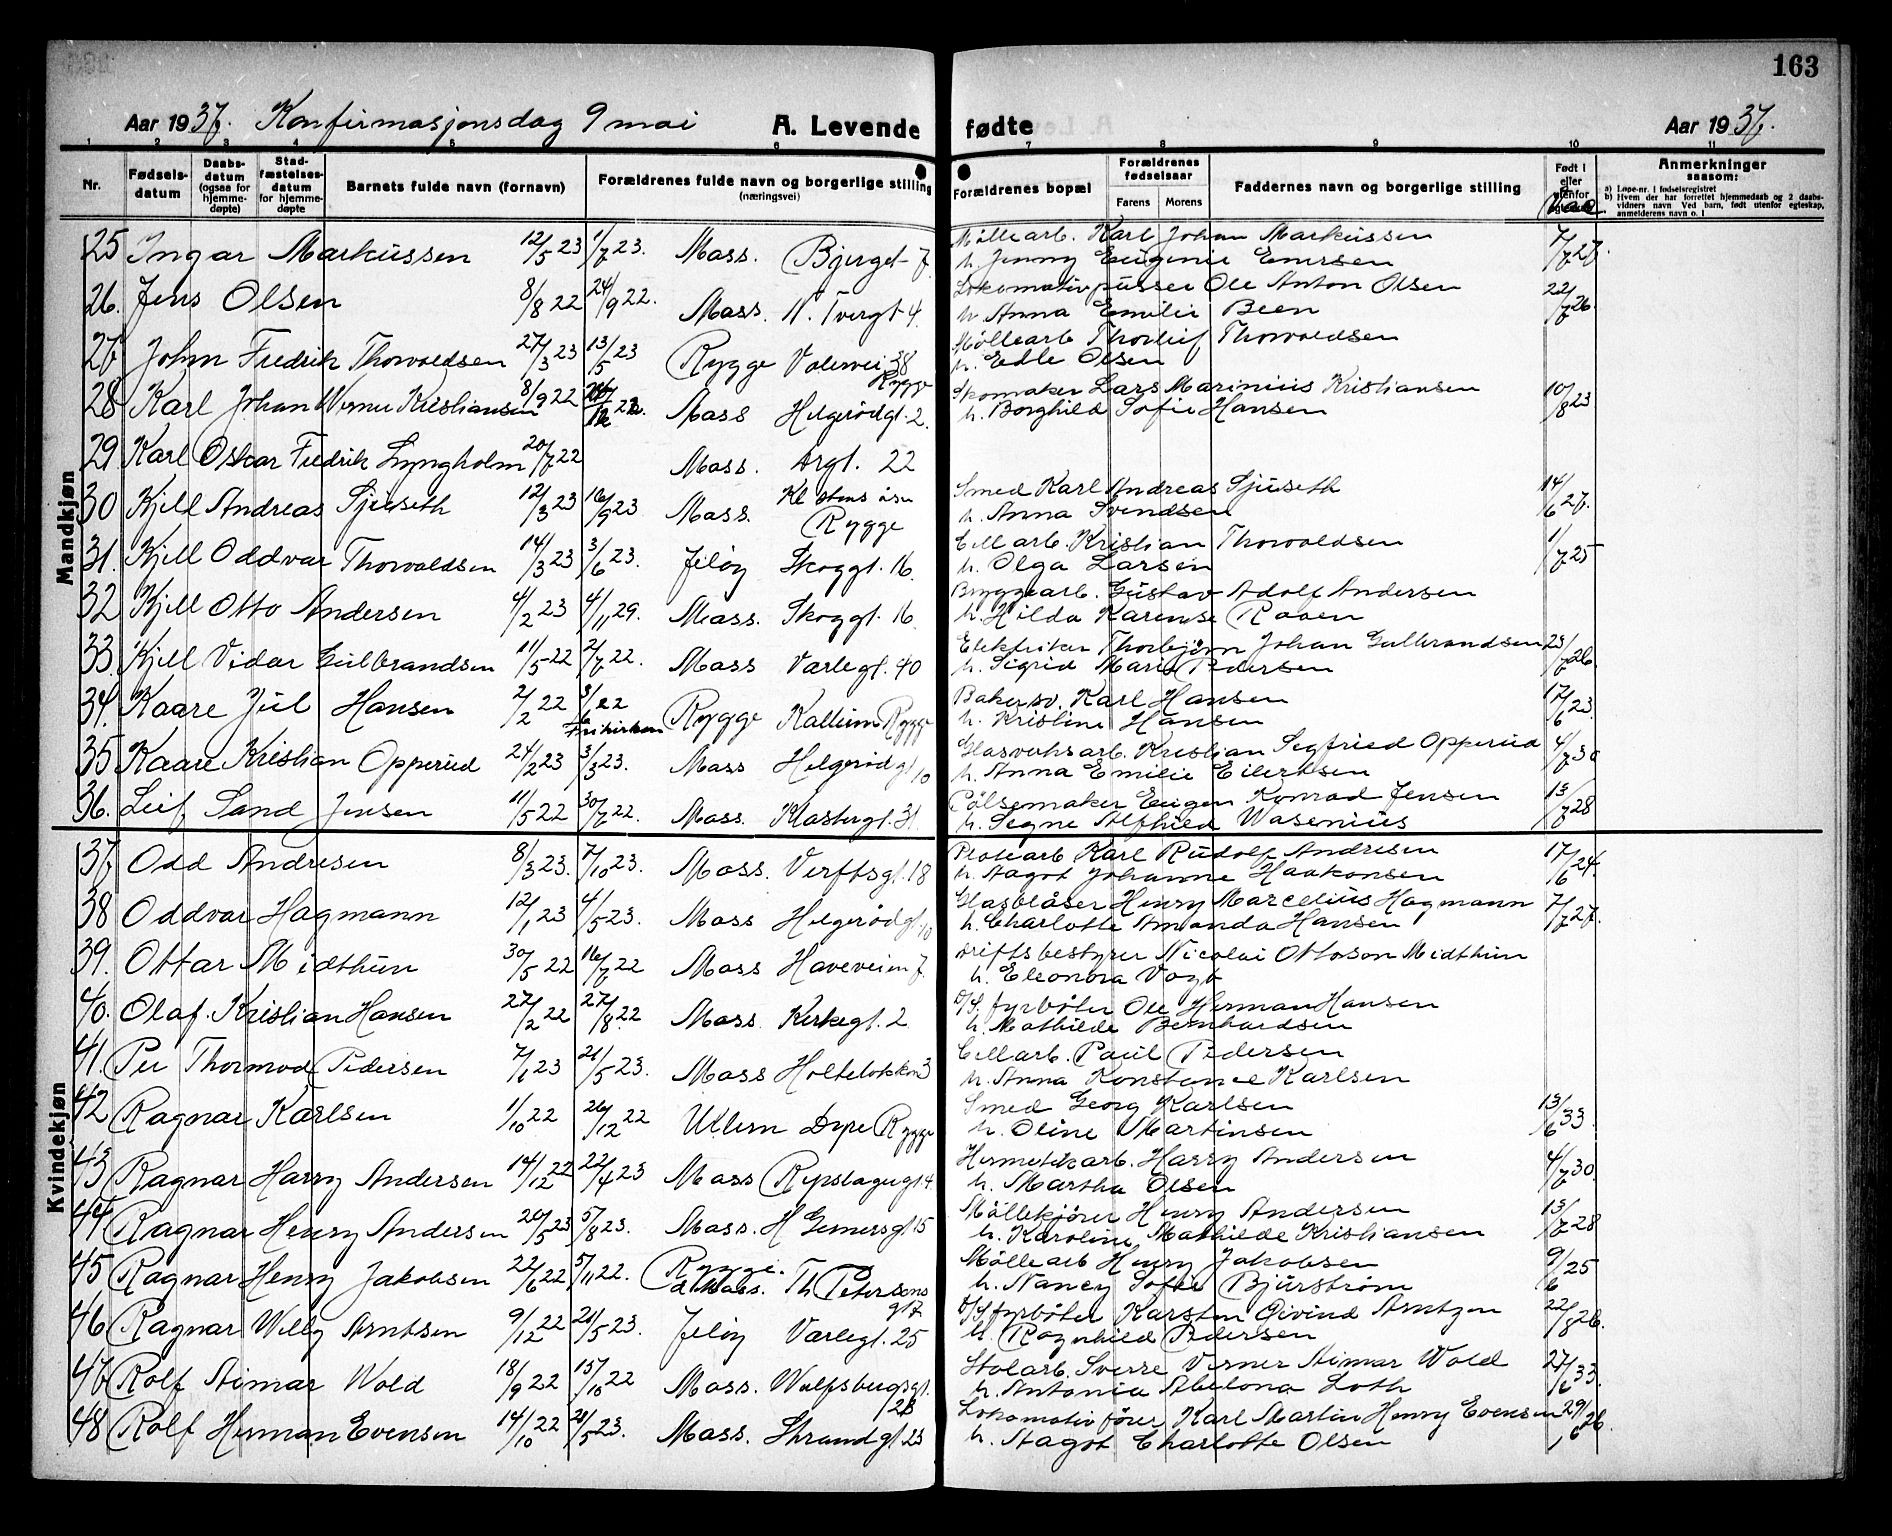 163
Aar 1937. Konfirmasjonsdag 9 mai A. Levende fødte Aar 1937.
1 2 3 4 5 6 7 8 9 10 11
Nr. Fødselsdatum Daabsdatum (ogsaa for hjemmedøpte) Stadfæstelsesdatum for hjemmedøpte Barnets fulde navn (fornavn) Forældrenes fulde navn og borgerlige stilling (næringsvei) Forældrenes bopæl Forældrenes fødselsaar Farens Morens Faddernes navn og borgerlige stilling Født i eller utenfor Anmerkninger saasom:
a) Løpe-nr. i fødselsregistret
b) Hvem der har forrettet hjemmedaab og 2 daabsvidners navn Ved barn, født utenfor egteskap, anmelderens navn o. l
Mandkjøn
25 Ingar Markussen 12/5 23 1/7 23. Moss. Bjerget 7 Møllearb. Karl Johan Markussen 7/7 27.
h. Jenny Eugenie Emersen
26. Jens Olsen 8/8 22 24/9 22. Moss. N. Tvergt 4. Lokomotivpusser Ole Anton Olsen 22/7 26.
h. Anna Emilie Been
27 John Fredrik Thorvaldsen 27/3 23 13/5 23 Rygge Valervei 38 Rygge Møllearb Thorleif Thorvaldsen
h. Edle Olsen
28 Karl Johan Werner Kristiansen 8/9 22 Moss Helgerødgt. 2. Skomaker Lars Marinius Kristiansen 10/8 23
h. Borghild Sofie Hansen
29 Karl Oskar Fredrik Lyngholm 20/7 22 Moss. 22
30 Kjell Andreas Sjuseth 12/3 23 16/9 23 Moss. Rygge Smed Karl Andreas Sjuseth 14/6 27.
h. Anna Svendsen
31. Kjell Oddvar Thorvaldsen 14/3 23 3/6 23. Jeløy Skoggt. 16. Cell arb. Kristian Thorvaldsen 1/7 25
h. Olga Larsen
32 Kjell Otto Andersen 4/2 23 4/11 29. Moss. Skoggt. 16. Bryggearb. Gustav Adolf Andersen
h. Hilda Karense Raaen
33. Kjell Vidar Gulbrandsen 11/5 22 2/7 22. Moss Varlegt. 40 Elektriker Thorbjørn Johan Gulbrandsen 25/7 26.
h. Sigrid Marie Pedersen
34. Kaare Jul Hansen 2/2 22 3/6 22 Frikirken Rygge Kallum Rygge Bakersv. Karl Hansen 17/6 23.
h. Kristine Hansen
35 Kaare Kristian Opperud 24/2 23 3/3 23. Moss Helgerødgt 10 Glasverksarb. Kristian Segfried Opperud 4/7 30
h. Anna Emilie Eilertsen
36. Leif Sand Jensen 11/5 22 30/7 22. Moss. Klostergt. 31. Pølsemaker Eugen Konrad Jensen 13/7 28
h. Segne Alfhild Wasenius
Kvindekjøn
37 Odd Andresen 8/3 23. 7/10 23. Moss. Verftsgt. 18 Platearb Karl Rudolf Andresen 17/6 24.
h. Dagot Johanne Haakonsen
38 Oddvar Hagmann 12/1 23 4/5 23. Moss Helgerødgt 10 Glasblåser Henry Marcelius Hagmann 7/7 27.
h. Charlotte Amanda Hansen
39. Ottar Midthun 30/5 22 16/7 22 Moss Haveveien 7. Driftsbestyrer Nicolai Ottoson Midthun
h. Eleonora Vogt
40. Olaf. Kristian Hansen 27/2 22 27/8 22 Moss. Kirkegt. 2 D/S. fyrbøter Ole Herman Hansen
h. Mathilde Bernhardsen
41. Per Thormod Pedersen 7/1 23 21/5 23. Moss Holteløkken 3 Cellarb. Paul Pedersen
h. Anna Konstance Karlsen
42 Ragnar Karlsen 1/10 22 26/12 22 Ullern Dype Rygge Smed Georg Karlsen 13/6 33
h. Oline Martinsen
43 Ragnar Harry Andersen 14/12 22 22/4 23 Moss Repslagergt 4. Hermetikarb. Harry Andersen 4/7 30.
h. Martha Olsen
44 Ragnar Henry Andersen 20/5 23 5/8 23. Moss. H Gernersgt 15 Møllekjører Henry Andersen 13/7 28
h. Karoline Mathilde Kristiansen
45 Ragnar Henry Jakobsen 22/6 22 5/11 22. Rygge. Th Petersons gt 7 Møllearb Henry Jakobsen 9/6 25
h. Nancy Sofie Bjurstrøm
46 Ragnar Willy Arntsen 9/12 22 21/5 23. Jeløy Varlegt. 25 D/S fyrbøter Karsten Øivind Arntzen 22/8 26.
h. Ragnhild Pedersen
47 Rolf Aimar Wold 18/9 22 15/10 22 Moss. Wulfsbergsgt. 2B Stolarb. Sverre Verner Aimar Wold 27/6 33.
h. Antonia Abelona Loth
48 Rolf Herman Evensen 14/10 22 21/5 23. Moss. Strandgt 23 Lokomotivfører Karl Martin Henry Evensen 29/6 26.
h. Dagot Charlotte Olsen